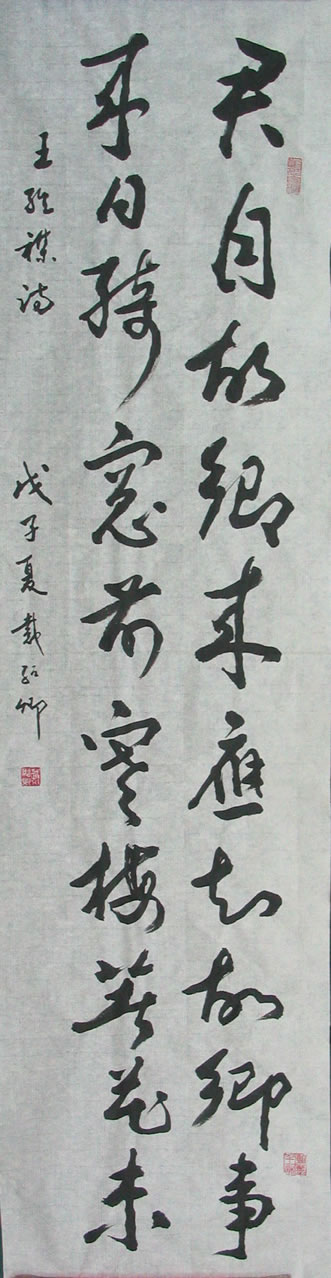 君自故鄉来應知故鄉事
来日綺窓前寒梅著花未
王維襍詩
戊子夏戴紹卿